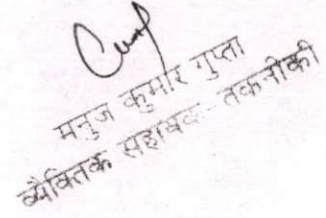 मनुज कुमार गुप्ता
वैयक्तिक सहायक - तकनीकी